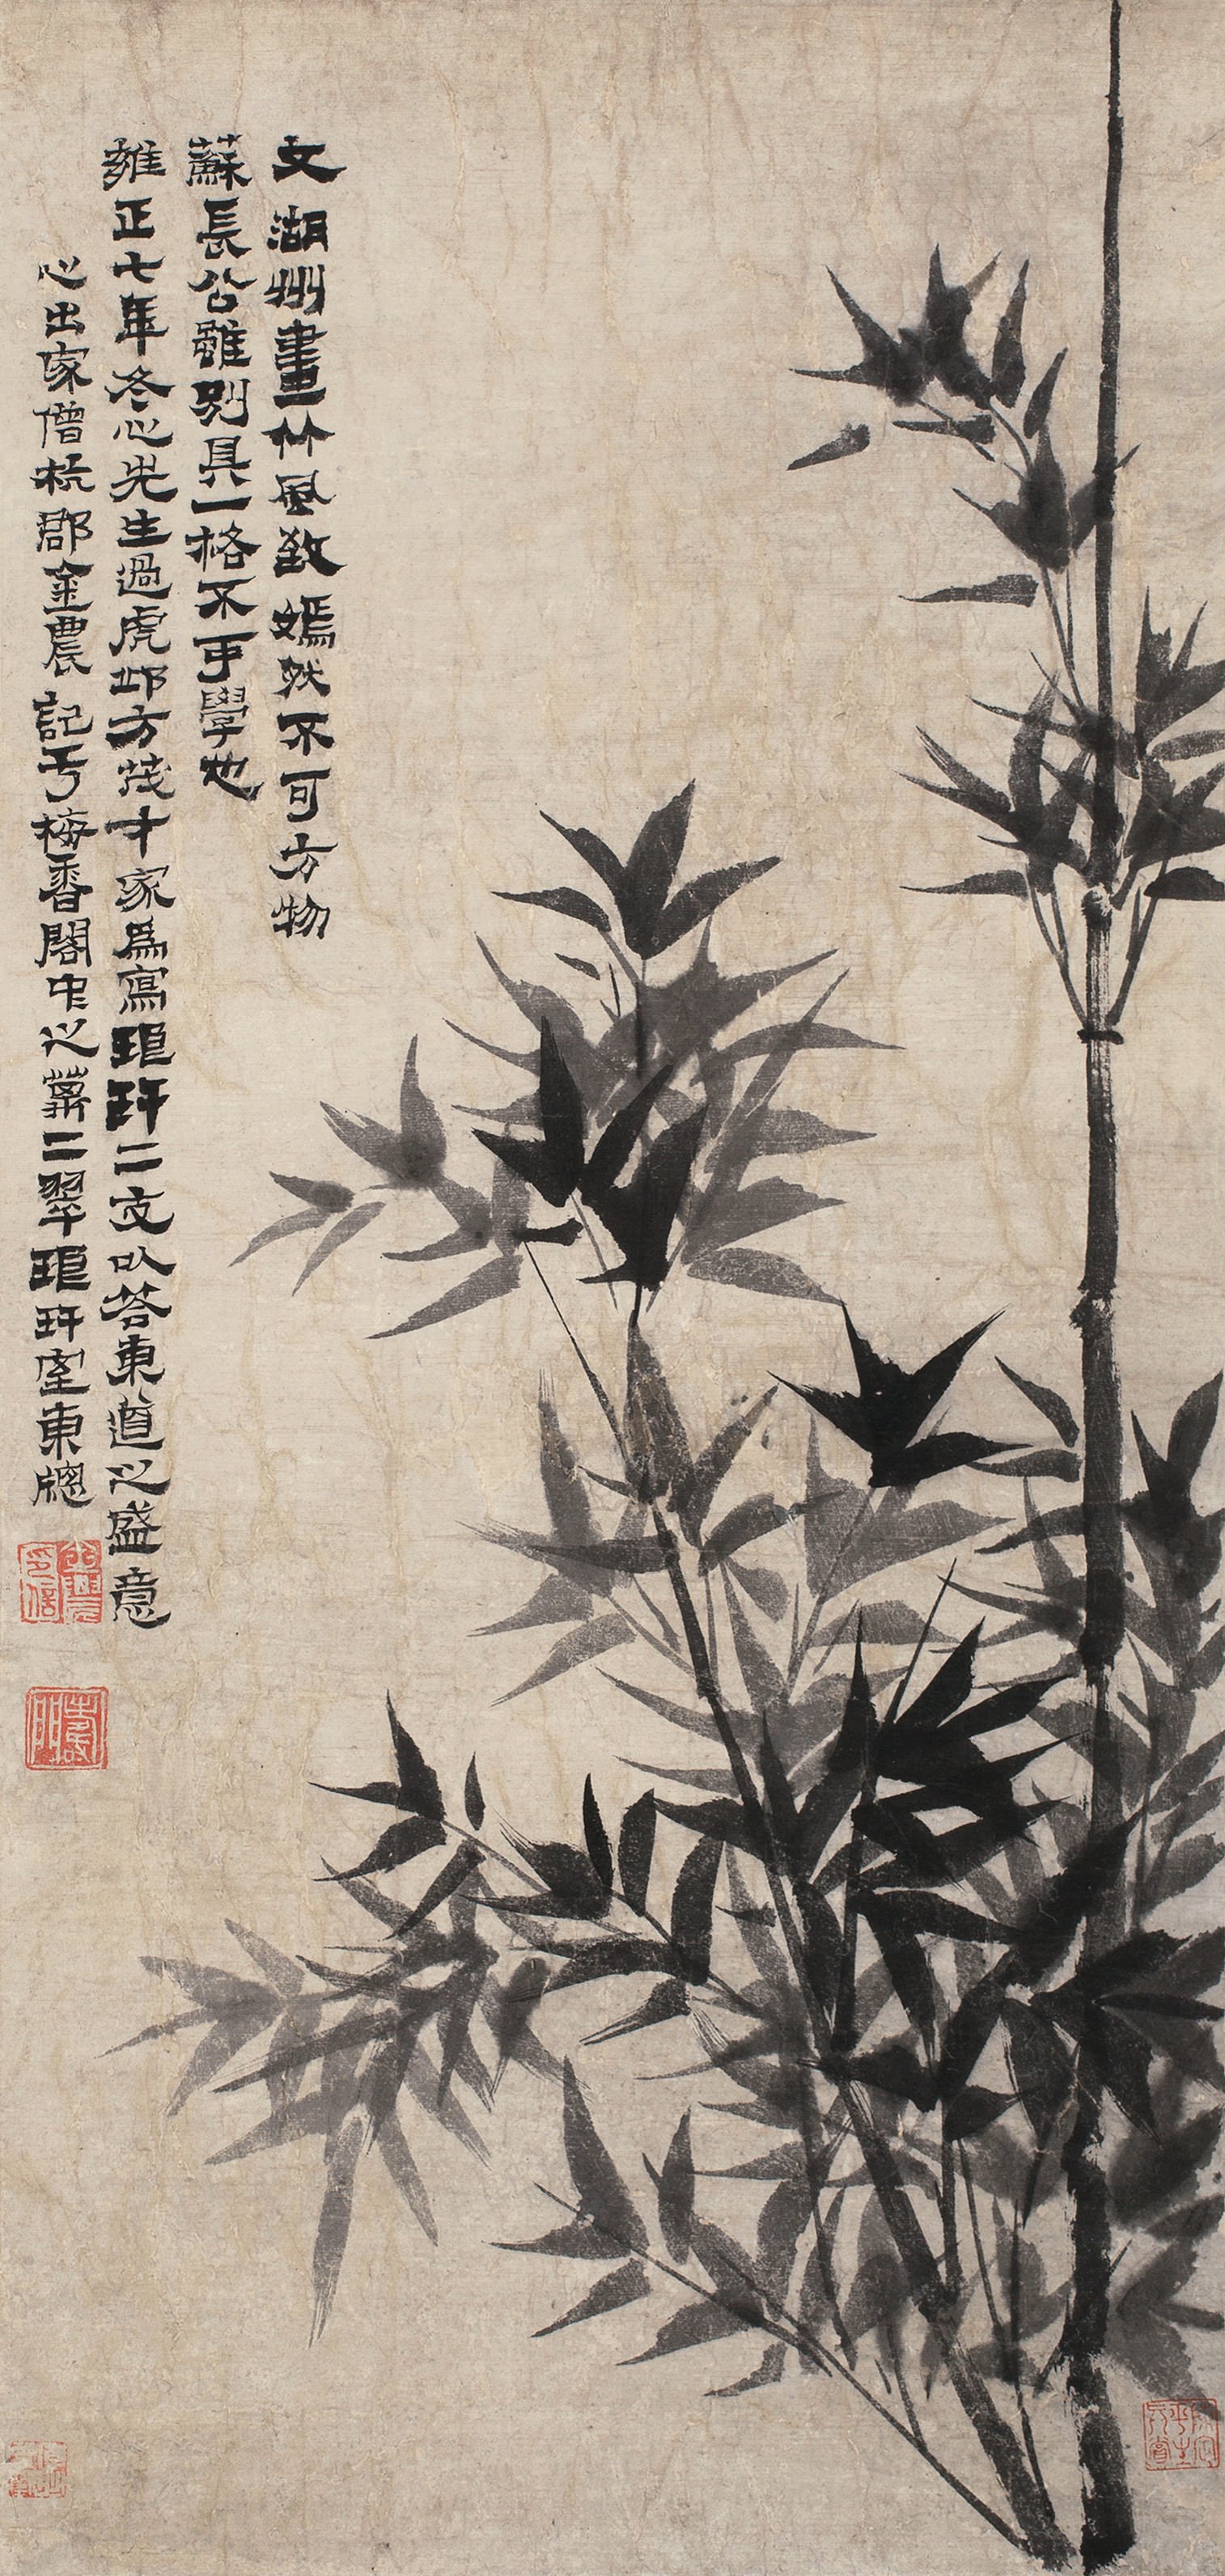 文湖州畫竹風致嫣然不可方物
蘇長公雖別具一格不可學也
雍正七年冬心先生過虎邱方茂才家為寫琅玕二支以答東道之盛意
心出家僧杭郡金農記于梅香閣中之第二翠琅玕室東牕